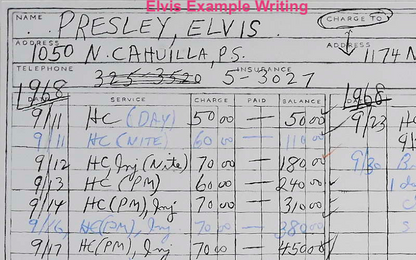 Elvis Example Writing
NAME PRESLEY, ELVIS CHARGE TO
ADDRESS 1050 N. CAHUILLA, P.S. ADDRESS 1174 N
TELEPHONE 325-3520 INSURANCE 5-3027
1968 DATE SERVICE CHARGE PAID BALANCE 1968
9/11 HC (DAY) 50 00 — 50 00 9/23 HC
9/11 HC (NITE) 60 00 — 110 00 9/
9/12 HC Inj (Nite) 70 00 — 180 00 9/30
9/13 HC (PM) 60 00 — 240 00
9/14 HC (PM), Inj 70 00 — 310 00
9/16 HC (PM), Inj 70 00 — 380 00
9/17 HC (PM), Inj 70 00 — 450 00